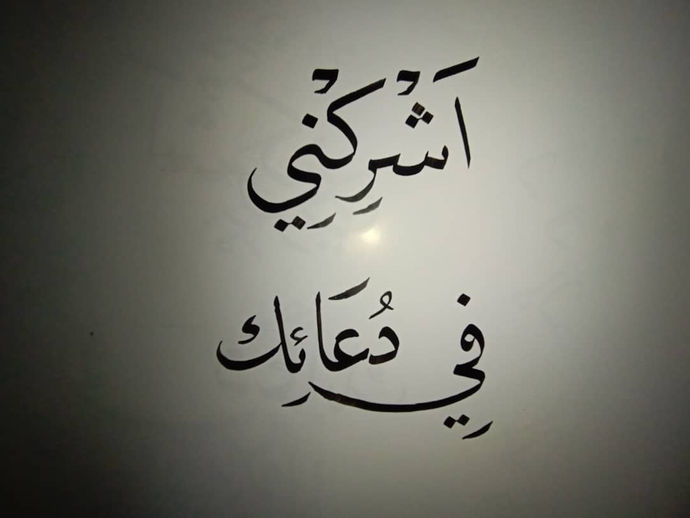 اَشْرِكْنِي
فِي دُعَائِك